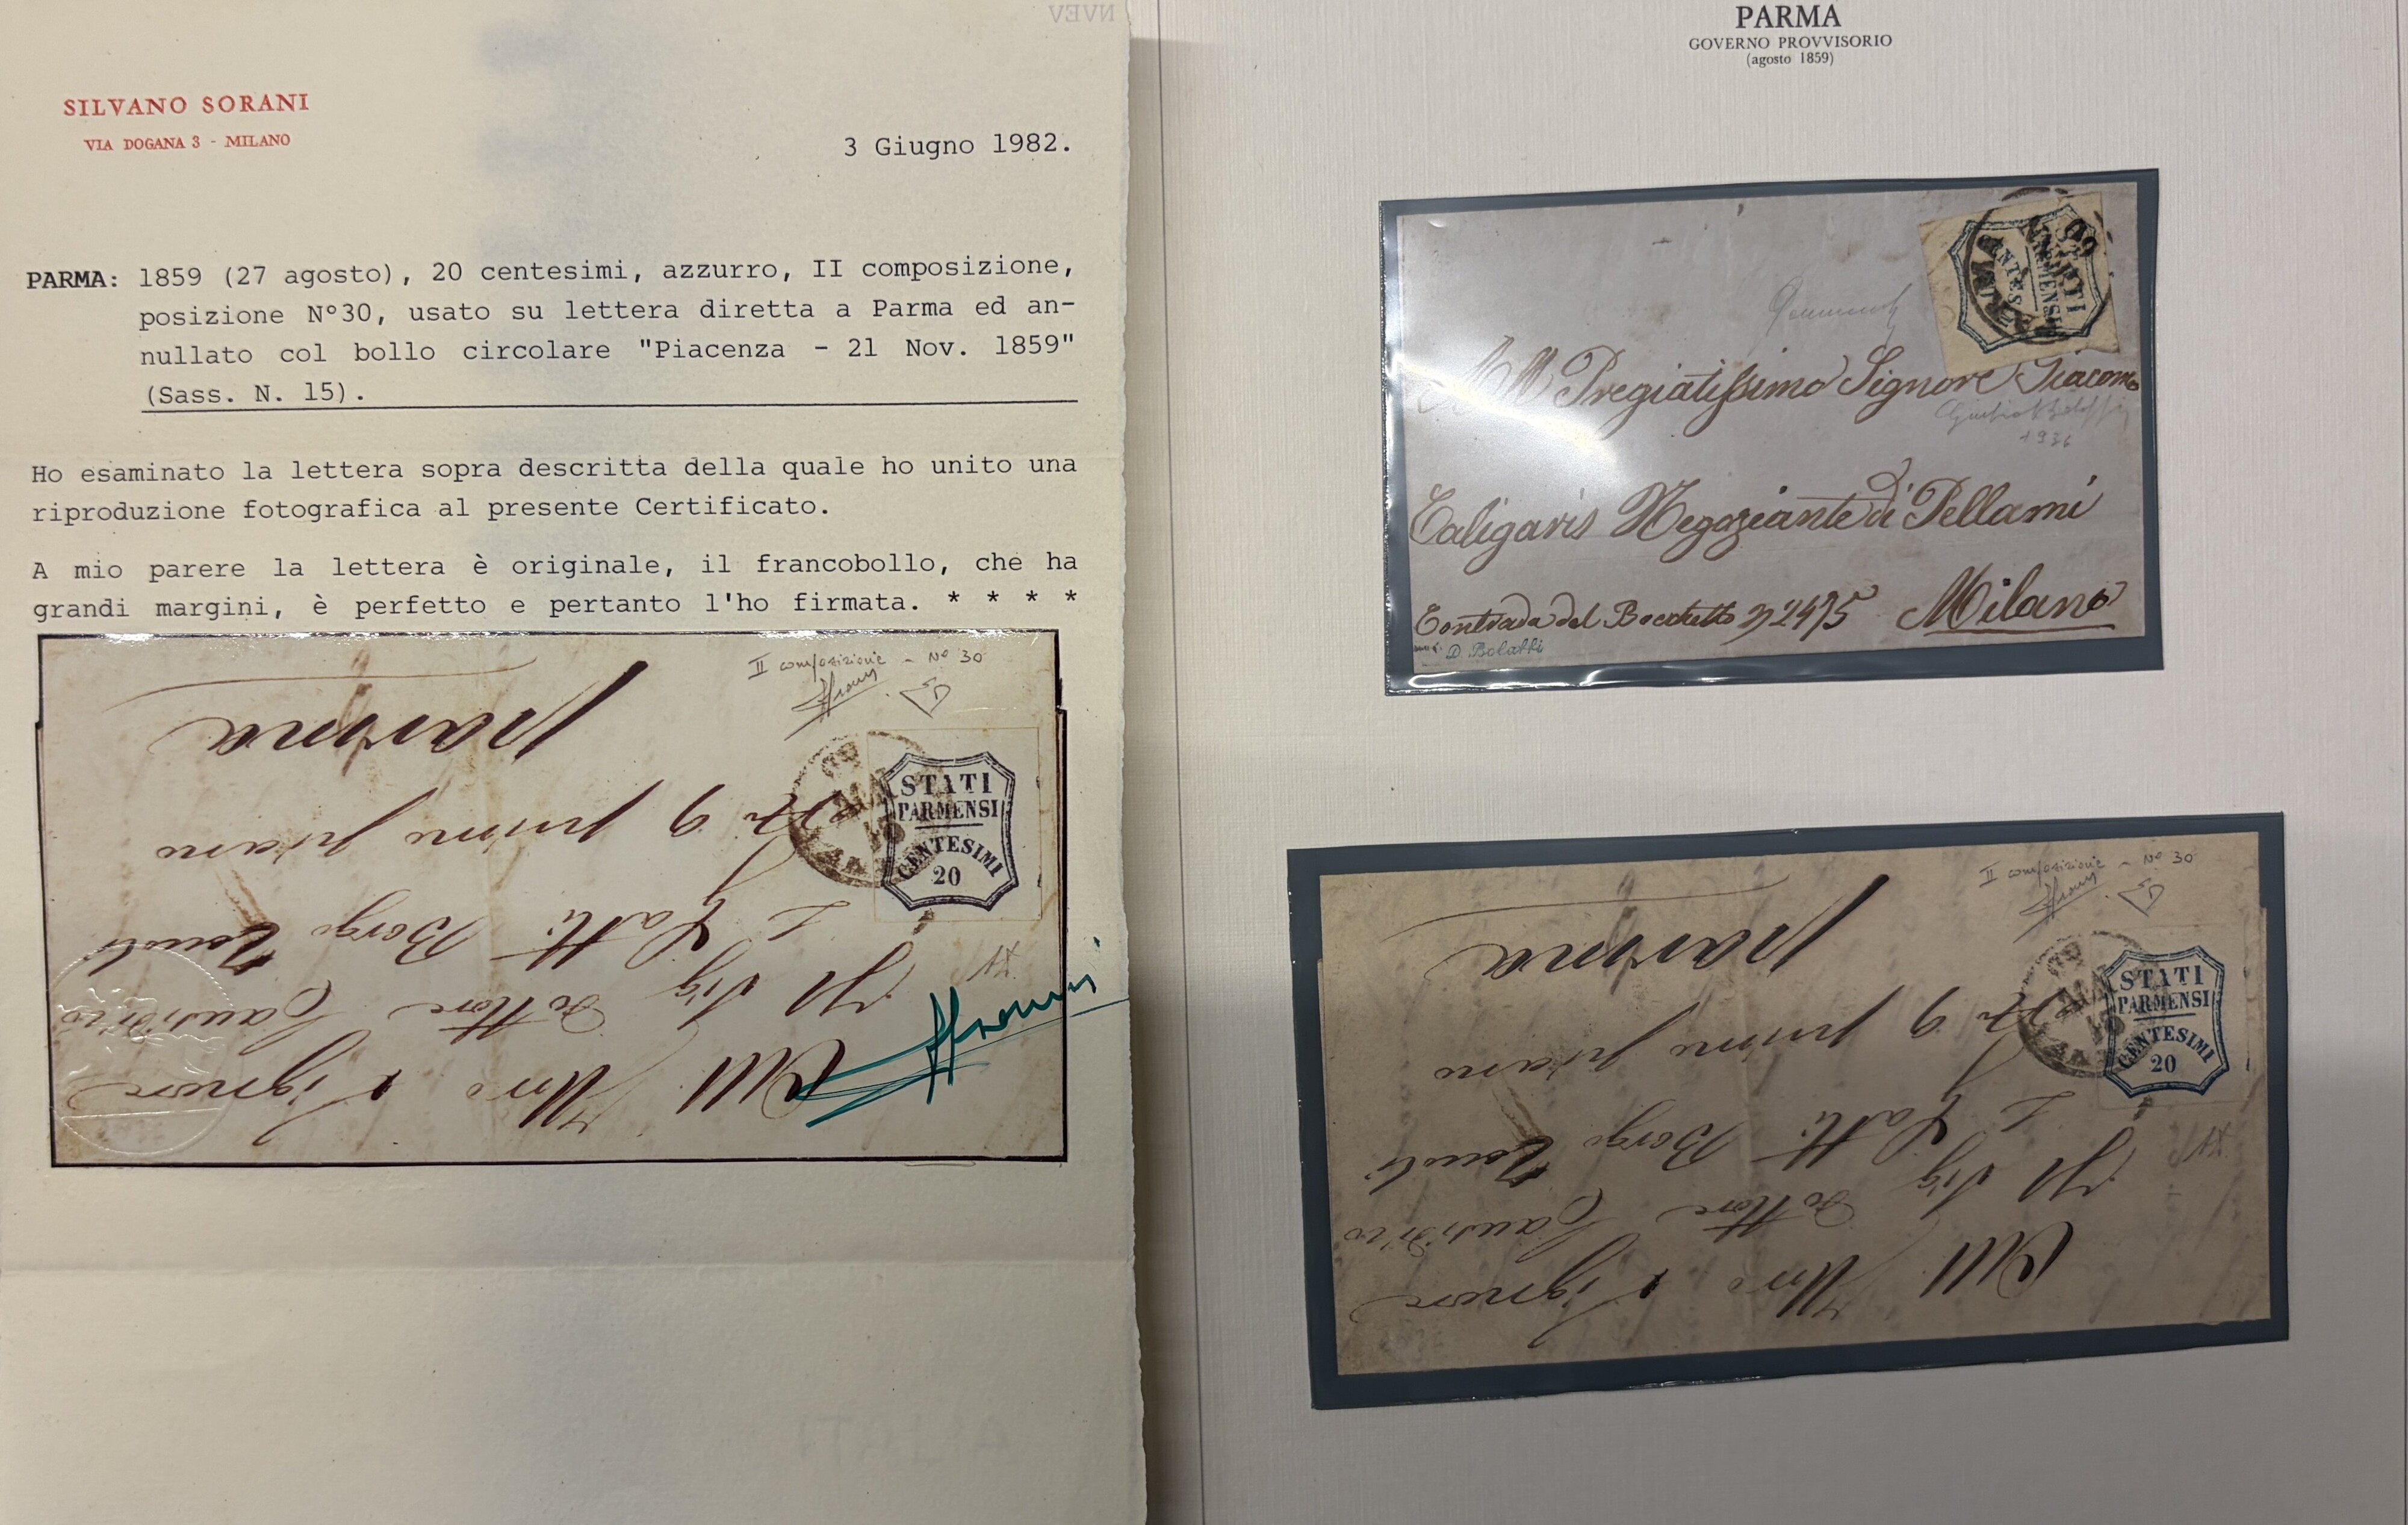 SILVANO SORANI
VIA DOGANA 3 - MILANO
3 Giugno 1982.
PARMA: 1859 (27 agosto), 20 centesimi, azzurro, II composizione,
posizione N°30, usato su lettera diretta a Parma ed an-
nullato col bollo circolare "Piacenza - 21 Nov. 1859"
(Sass. N. 15).
Ho esaminato la lettera sopra descritta della quale ho unito una
riproduzione fotografica al presente Certificato.
A mio parere la lettera è originale, il francobollo, che ha
grandi margini, è perfetto e pertanto l'ho firmata. * * * *
II composizione - N° 30
SD
STATI
PARMENSI
CENTESIMI
20
parma
N 9 primo piano
Borgo
Il Sig Dottore
All Signore
PARMA
GOVERNO PROVVISORIO
(agosto 1859)
STATI
PARMENSI
PARMA
All Pregiatissimo Signore Giacomo
1936
Caligaris Negoziante di Pellami
Contrada del Bocchetto n 2475 Milano
D. Bolaffi
II composizione - N° 30
SD
STATI
PARMENSI
CENTESIMI
20
parma
N 9 primo piano
Borgo
Il Sig Dottore
All Signore